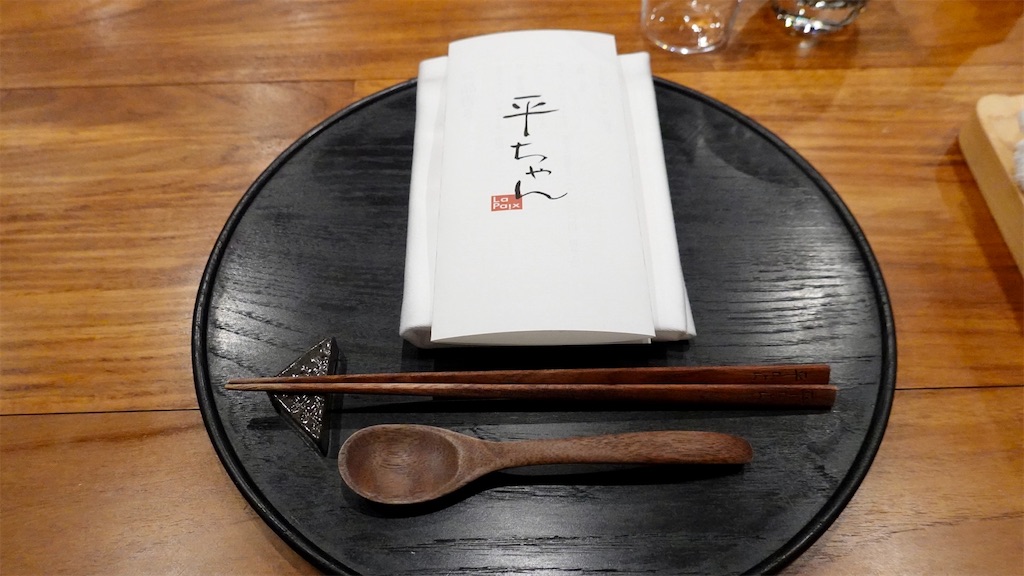 平ちゃん
La
Paix